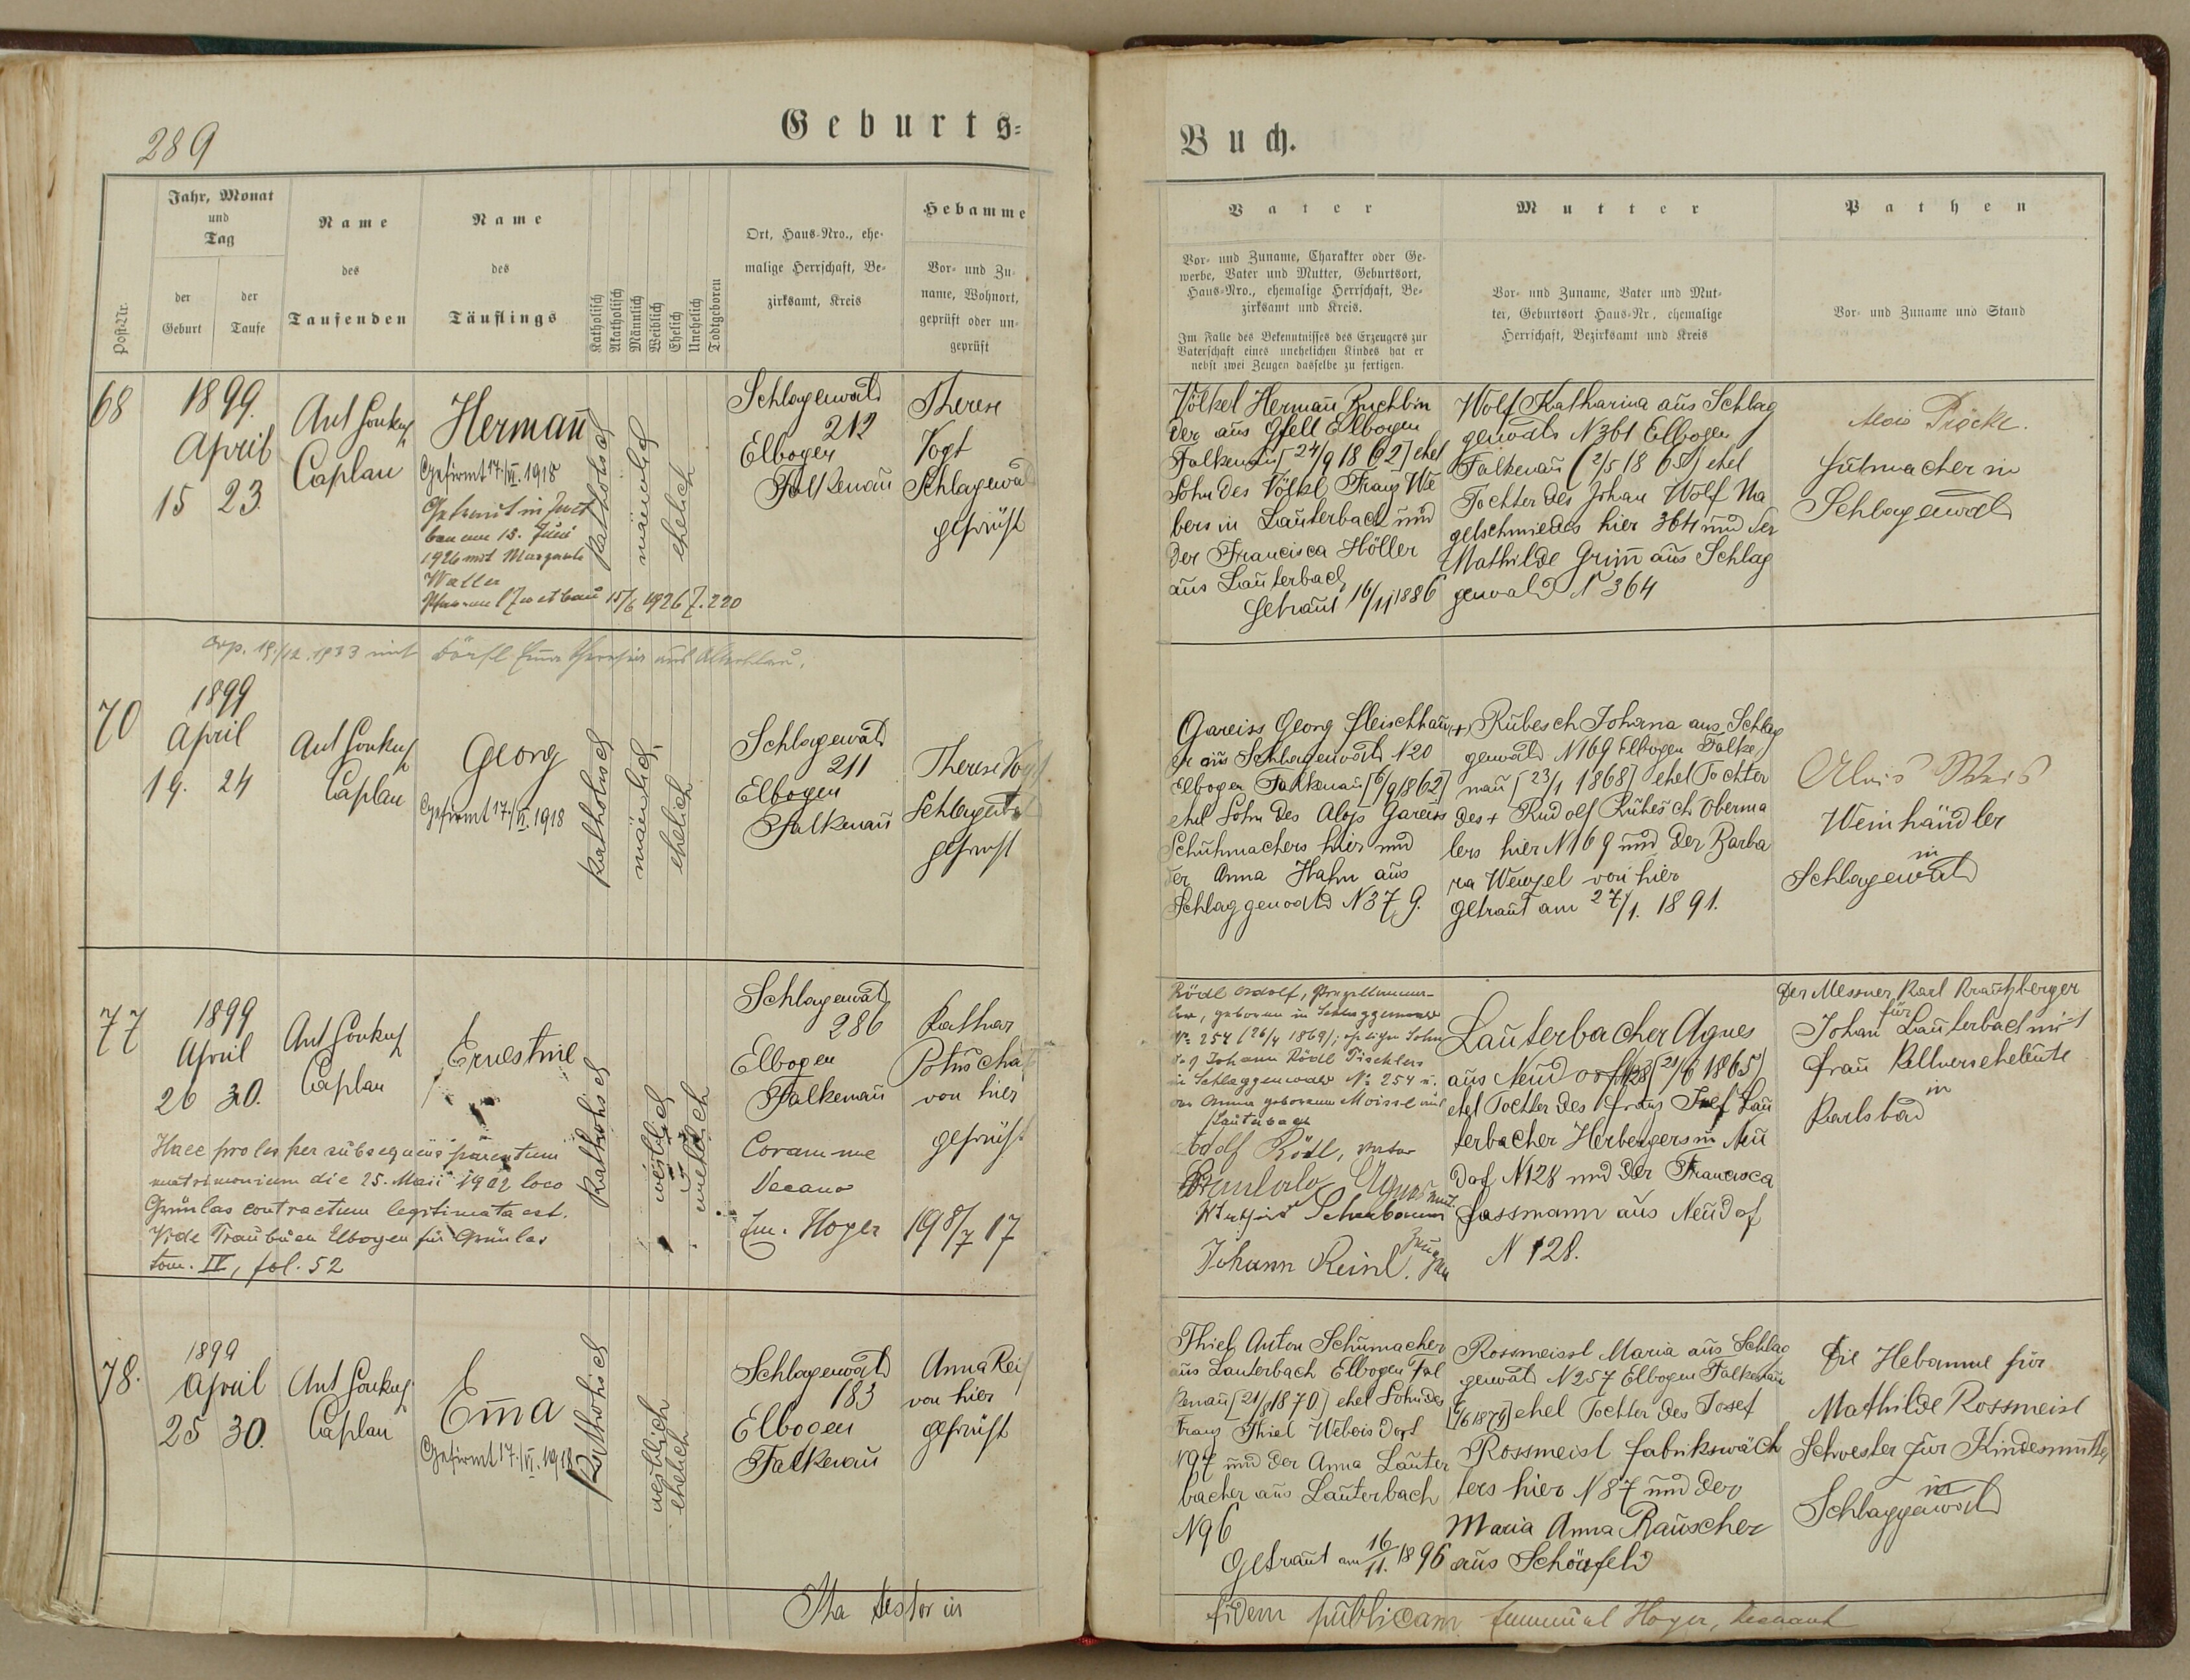 289
Geburts-
Jahr, Monat
und
Tag
der
Geburt
der
Taufe
Post-Nr.
Name
des
Taufenden
Name
des
Täuflings
Katholisch
Akatholisch
Männlich
Weiblich
Ehelich
Unehelich
Todtgeboren
Ort, Haus-Nro., ehe-
malige Herrschaft, Be-
zirksamt, Kreis
Hebamme
Vor- und Zu-
name, Wohnort,
geprüft oder un-
geprüft
68
1899.
April
15 23.
Ant
Caplan
Herman̄
Gefirmt 17./VI. 1918
15. Juni
1926 mit
Waller
15/6 1926 7. 220
katholisch
män̄lich
ehelich
Schlagenwald
212
Elbogen
Falkenau
Therese
Vogt
Schlagenwa
geprüft
1933 mit
70
1899
April
19. 24
Ant
Caplan
Georg
Gefirmt 17./VI. 1918
katholisch
män̄lich
ehelich
Schlagenwald
211
Elbogen
Falkenau
Therese Vogt
geprüft
77
1899
April
26 30.
Ant
Caplan
Ernestine
Haec proles per subsequens parentum
matrimonium die 25. Maii 1902 loco
Grünlas contractum legitimata est.
Vide Traubuch Elbogen für Grünlas
tom. IV, fol. 52
katholisch
weiblich
Schlagenwald
286
Elbogen
Falkenau
Coram me
Decano
Em. Hoyer
Kathar
von hier
geprüft
198/7 17
78.
1899
April
25 30.
Ant
Caplan
Em̄a
Gefirmt 17./VI. 1918
katholisch
weiblich
ehelich
Schlagenwald
183
Elbogen
Falkenau
Anna Rei
von hier
geprüft
Ita testor in
Buch.
Vater
Vor- und Zuname, Charakter oder Ge-
werbe, Vater und Mutter, Geburtsort,
Haus-Nro., ehemalige Herrschaft, Be-
zirksamt und Kreis.
Im Falle des Bekenntnisses des Erzeugers zur
Vaterschaft eines unehelichen Kindes hat er
nebst zwei Zeugen dasselbe zu fertigen.
Mutter
Vor- und Zuname, Vater und Mut-
ter, Geburtsort Haus-Nr. ehemalige
Herrschaft, Bezirksamt und Kreis
Pathen
Vor- und Zuname und Stand
Völkel Herman̄ Buchbin
der aus Gfell Elbogen
Falkenau [24/9 1862] ehel
Sohn des Völkl Franz We
bers in Lauterbach und
der Francisca Höller
aus Lauterbach
Getraut 16/11 1886
Wolf Katharina aus Schlag
genwald N 361 Elbogen
Falkenau (2/5 1865) ehel
Tochter des Johan̄ Wolf Na
gelschmiedes hier 364 und der
Mathilde Grim̄ aus Schlag
genwald N 364
Alois
Hutmacher in
Schlagenwald
Gareiss Georg Fleischhau
er aus Schlagenwald N 20
Elbogen Falkenau [6/9 1862]
ehel Sohn des Alois Gareiss
Schuhmachers hier und
der Anna Hahn aus
Schlaggenwald N 379.
+ Rubesch Johanna aus Schlag
genwald N 169 Elbogen Falke
nau [23/1 1868] ehel Tochter
des + Rudolf Rubesch Oberma
lers hier N 169 und der Barba
ra Wenzel von hier
Getraut am 27/1. 1891.
Alois Weis
Weinhändler
in
Schlagenwald
Rödl Adolf,
geboren in Schlaggenwald
No 254 (26/4 1869), ehelicher Sohn
Johann Rödl Tischlers
in Schlaggenwald No 254 u.
der Anna geborenen Moissl aus
Lauterbach
Adolf Rödl, Vater
Agnes
Johann Reinl.
Zeugen
Lauterbacher Agnes
aus Neudorf 128 [21/6 1865]
ehel Tochter des Franz Josef Lau
terbacher Herbergers in Neu
dorf N 128 und der Francisca
Fassmann aus Neudorf
N 128.
Der Messner Karl Krautzberger
für
Johan̄ Lauterbach mit
Frau Kellnerseheleute
in
Karlsbad
Thiel Anton Schumacher
aus Lauterbach Elbogen Fal
kenau [21/1 1870] ehel Sohn des
Franz Thiel Webers Dorf
N 97 und der Anna Lauter
bacher aus Lauterbach
N 96
Getraut am 16/11. 1896
Rossmeissl Maria aus Schlag
genwald N 257 Elbogen Falkenau
ehel Tochter des Josef
Rossmeisl Fabrikswäch
ters hier N 87 und der
Maria Anna Rauscher
aus Schönfeld
Die Hebamme für
Mathilde Rossmeisl
Schwester zur Kindesmutter
in
Schlaggenwald
fidem publicam Emmanuel Hoyer, Dechant